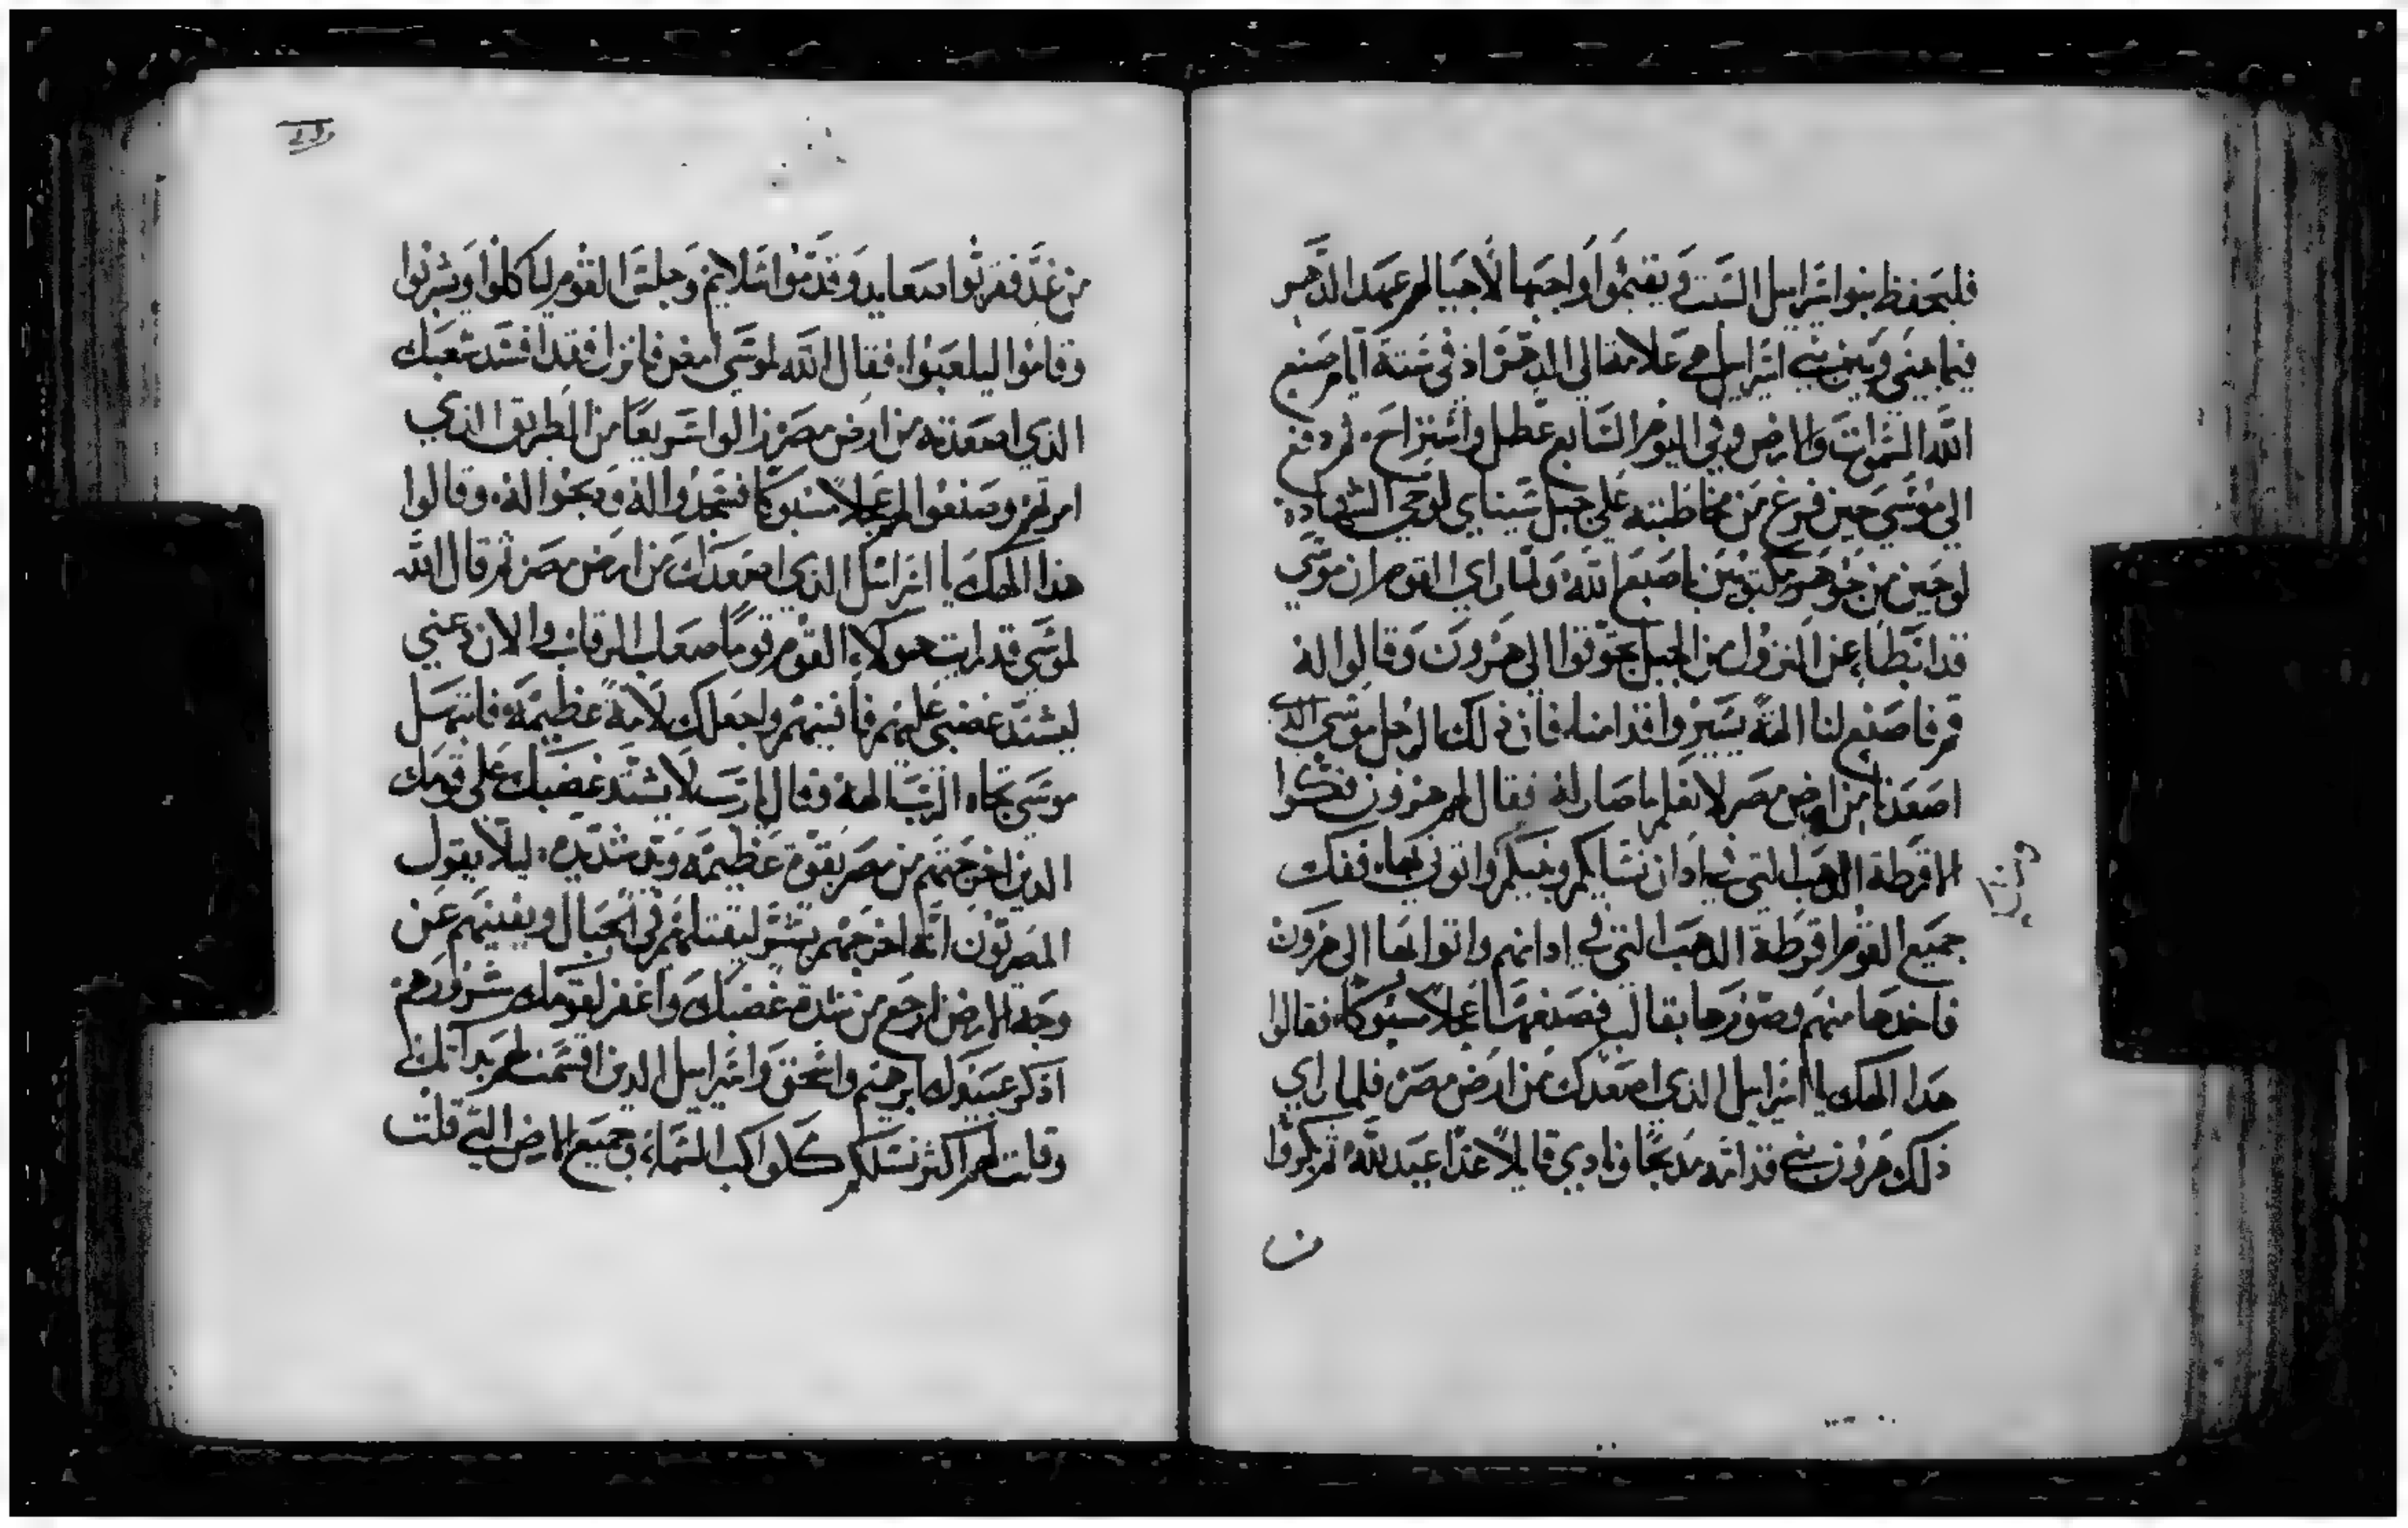 فليحفظ بنوا اسراييل السبت ويقيموا واجبها لاجيالهم عهد الدهر
فيما بيني وبين بني اسراييل هي علامة الي الدهر اذ في ستة ايام صنع
الله السموات والارض وفي اليوم السابع عطل واستراح ثم دفع
الي موسي حين فرغ من مخاطبته علي جبل سيناي لوحي الشهادة
لوحين من جوهر مكتوبين باصبع الله ولما راي القوم ان موسي
قد ابطا عن النزول من الجبل تجوقوا الي هرون وقالوا له
قم فاصنع لنا الهة يسيروا قدامنا فان ذلك الرجل موسي الذي
اصعدنا من ارض مصر لا نعلم ما صار له فقال لهم هرون فكوا
اقرطة الذهب التي في اذان نسايكم وبنيكم واتوني بها ففك
وبناتكم
جميع القوم اقرطة الذهب التي في اذانهم واتوا بها الي هرون
فاخدها منهم وصورها بقالب فصنعها عجلا مسبوكا فقالوا
هذا الهك يا اسراييل الذي اصعدك من ارض مصر فلما راي
ذلك هرون بني قدامه مدبحا ونادي قايلا غدا عيد لله ثم بكروا
من غد فقربوا صعايد وقدموا سلايم وجلس القوم لياكلوا ويشربوا
وقاموا ليلعبوا فقال الله لموسي امض فانزل فقد افسد شعبك
الذي اصعدته من ارض مصر زالوا سريعا من الطريق الذي
امرتهم وصنعوا لهم عجلا مسبوكا فسجدوا له ودبحوا له وقالوا
هذا الهك يا اسراييل الذي اصعدك من ارض مصر ثم قال الله
لموسي قد رايت هولاء القوم قوما صعاب الرقاب والان دعني
ليشتد غضبي عليهم فافنيهم واجعلك لامة عظيمة فابتهل
موسي تجاه الرب الهه فقال يا رب لا يشتد غضبك علي قومك
الذين اخرجتهم من مصر بقوة عظيمة ويد شديدة ليلا يقول
المصريون انه اخرجهم بشر ليقتلهم في الجبال ويفنيهم عن
وجه الارض ارجع من شدة غضبك واغفر لقومك شرورهم
اذكر عبيدك ابرهيم واسحق واسراييل الذين اقسمت لهم بداتك
وقلت لهم اكثر نسلكم ككواكب السماء وجميع الارض التي قلت